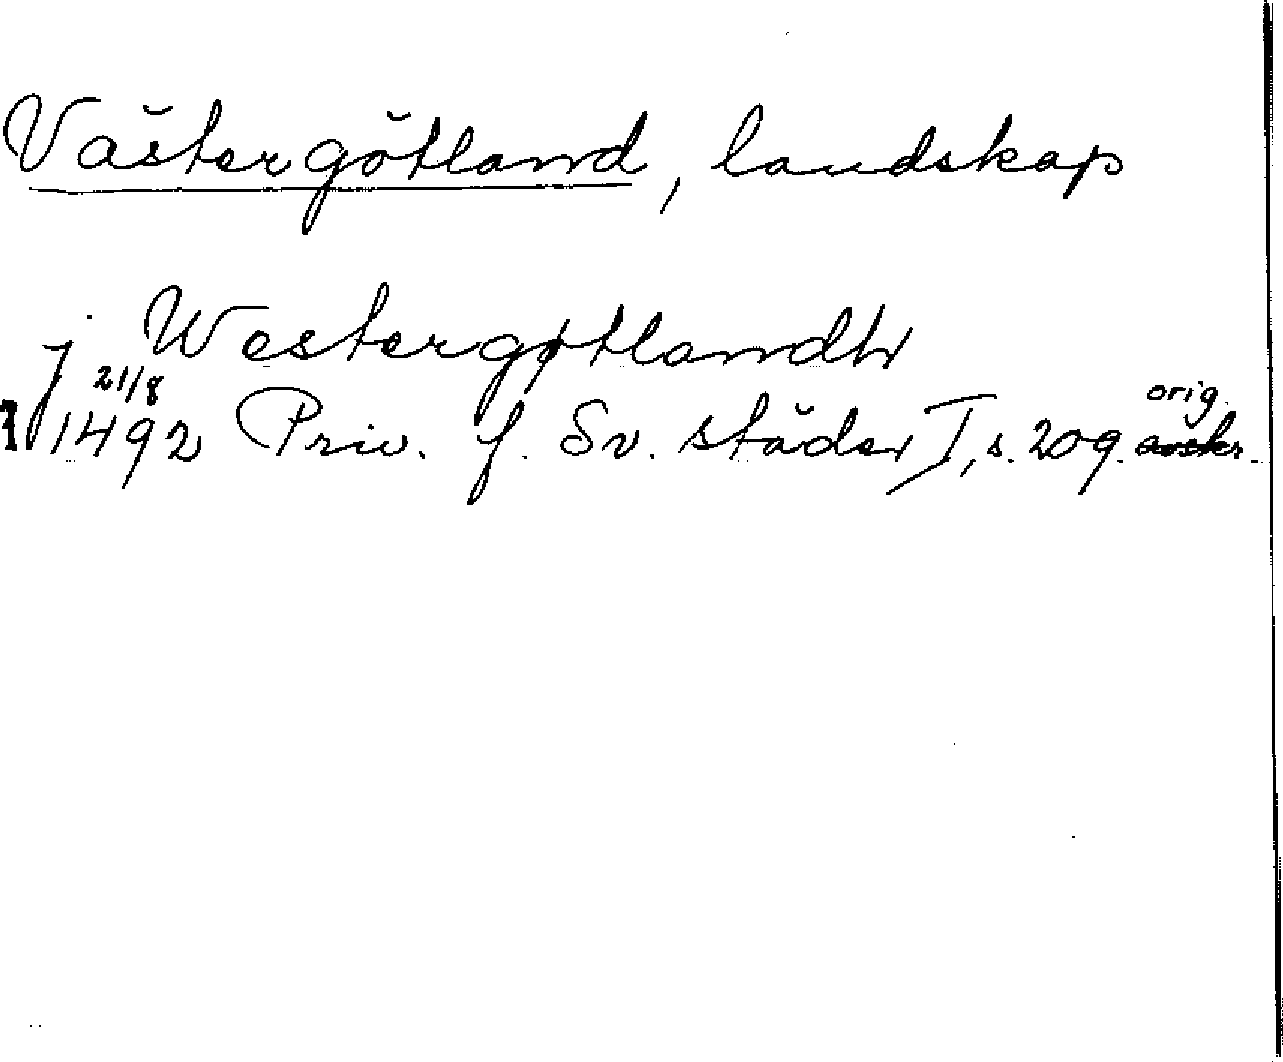 Västergötland, landskap
j Westergøtlandh
21/8 orig.
1492 Priv. f. Sv. städer I, s. 209. avskr.